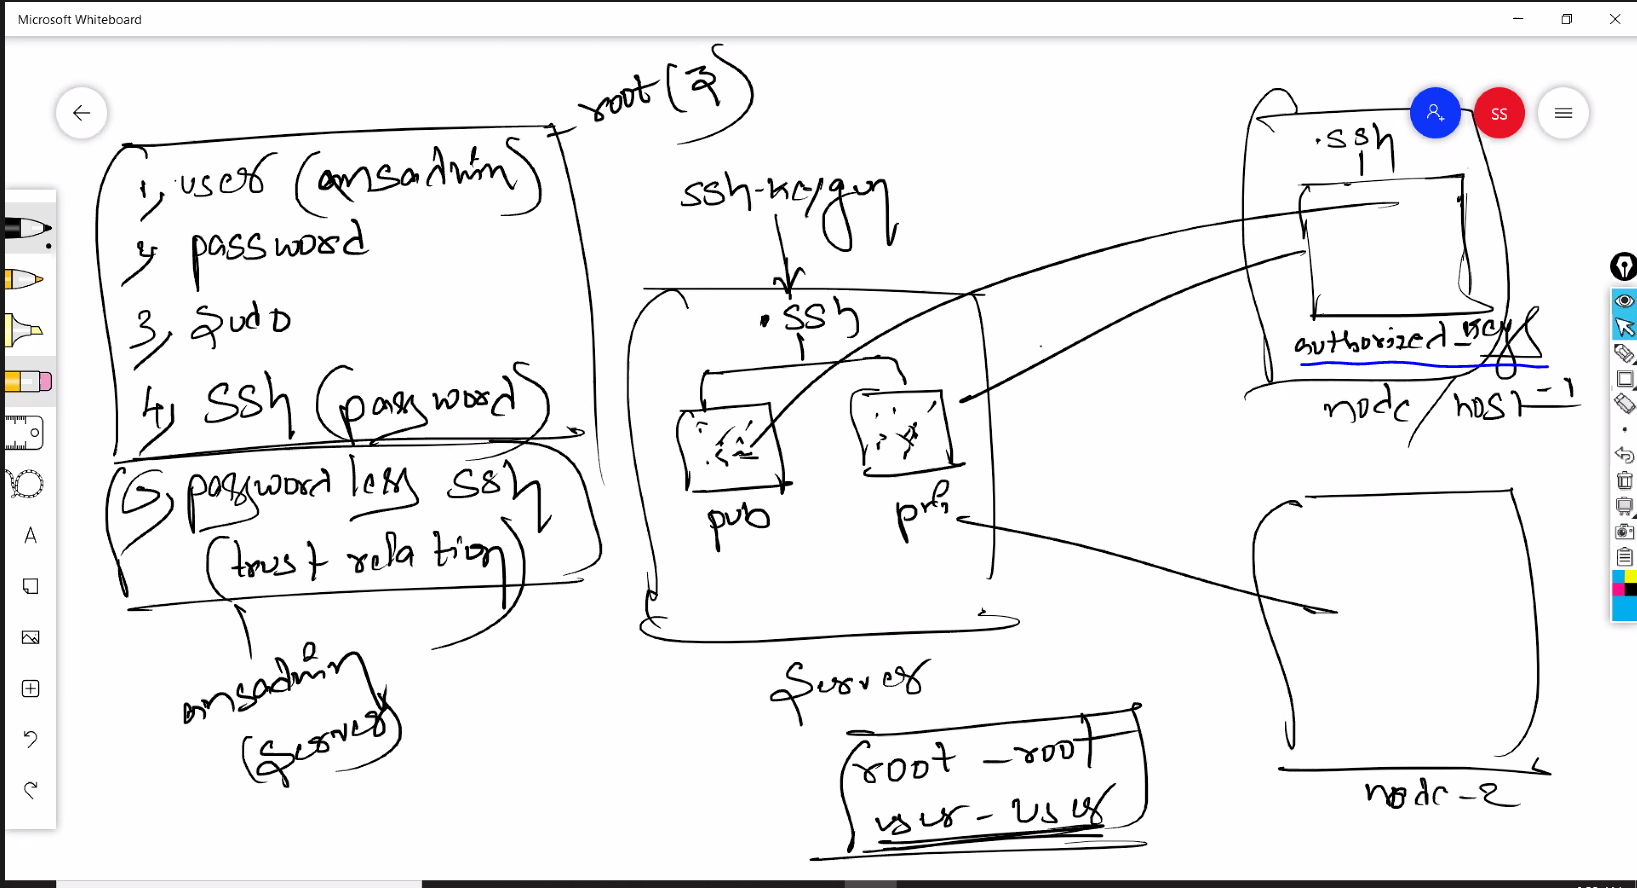 Microsoft Whiteboard
root (3)
SS
1, user (ansadmin)
2, password
3, sudo
4, ssh (password)
5, password less ssh
(trust relation)
ansadmin
(Server)
ssh-keygen
.ssh
pub
pri
Server
root - root
user - user
.ssh
authorized_keys
node / host-1
node-2
A